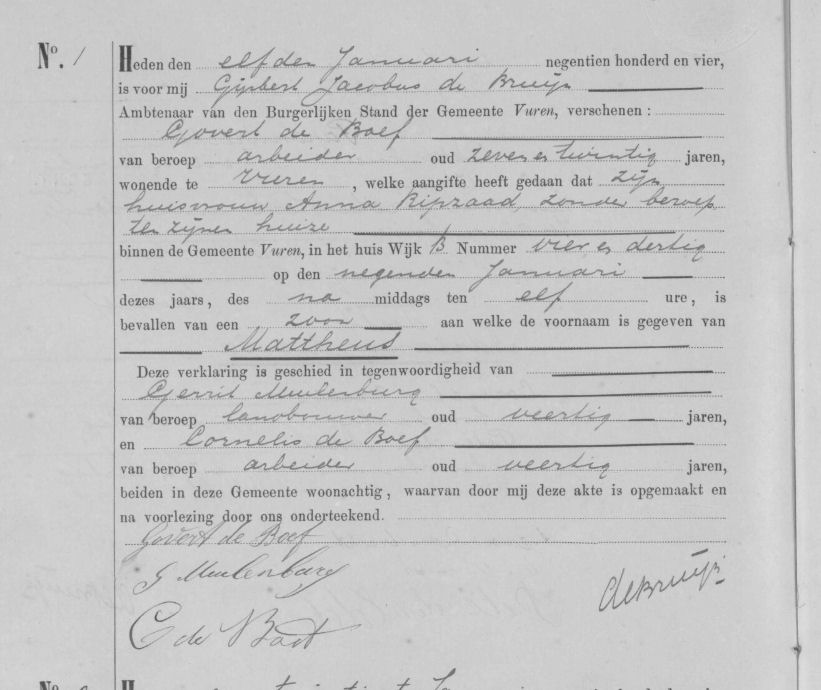 No. 1
Heden den elfden Januari negentien honderd en vier,
is voor mij Gijsbert Jacobus de Bruijn
Ambtenaar van den Burgerlijken Stand der Gemeente Vuren, verschenen:
Govert de Boef
van beroep arbeider oud zeven en twintig jaren,
wonende te Vuren, welke aangifte heeft gedaan dat zijn
huisvrouw Anna Ripzaad zonder beroep
ten zijnen huize
binnen de Gemeente Vuren, in het huis Wijk B. Nummer vier en dertig
op den negenden Januari
dezes jaars, des na middags ten elf ure, is
bevallen van een zoon aan welke de voornaam is gegeven van
Mattheus
Deze verklaring is geschied in tegenwoordigheid van
Gerrit Meulenburg
van beroep landbouwer oud veertig jaren,
en Cornelis de Boef
van beroep arbeider oud veertig jaren,
beiden in deze Gemeente woonachtig, waarvan door mij deze akte is opgemaakt en
na voorlezing door ons onderteekend.
Govert de Boef
G Meulenburg
deBruijn
C de Boef
No.